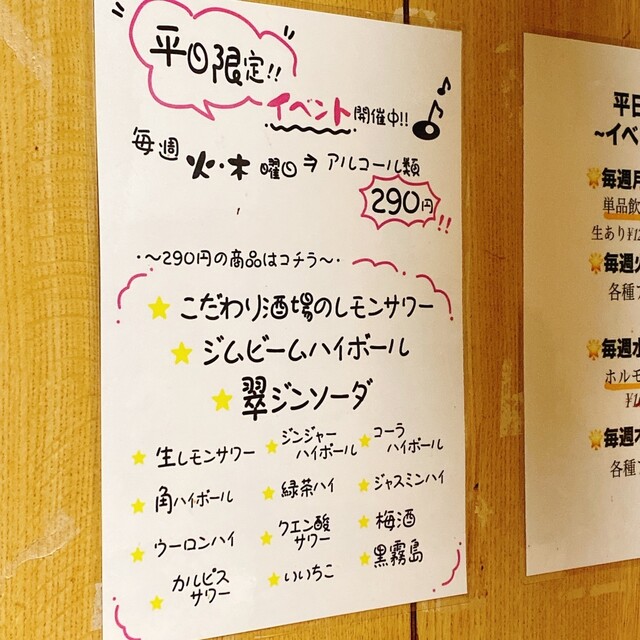 平日限定!!
イベント開催中!!
毎週 火・木 曜日⇒アルコール類
290円!!
・〜290円の商品はコチラ〜・
こだわり酒場のレモンサワー
ジムビームハイボール
翠ジンソーダ
生レモンサワー
ジンジャー
ハイボール
コーラ
ハイボール
角ハイボール
緑茶ハイ
ジャスミンハイ
ウーロンハイ
クエン酸
サワー
梅酒
カルピス
サワー
いいちこ
黒霧島
平日
~イベ
毎週月
単品飲
生あり
毎週火
各種
毎週水
ホルモ
毎週木
各種